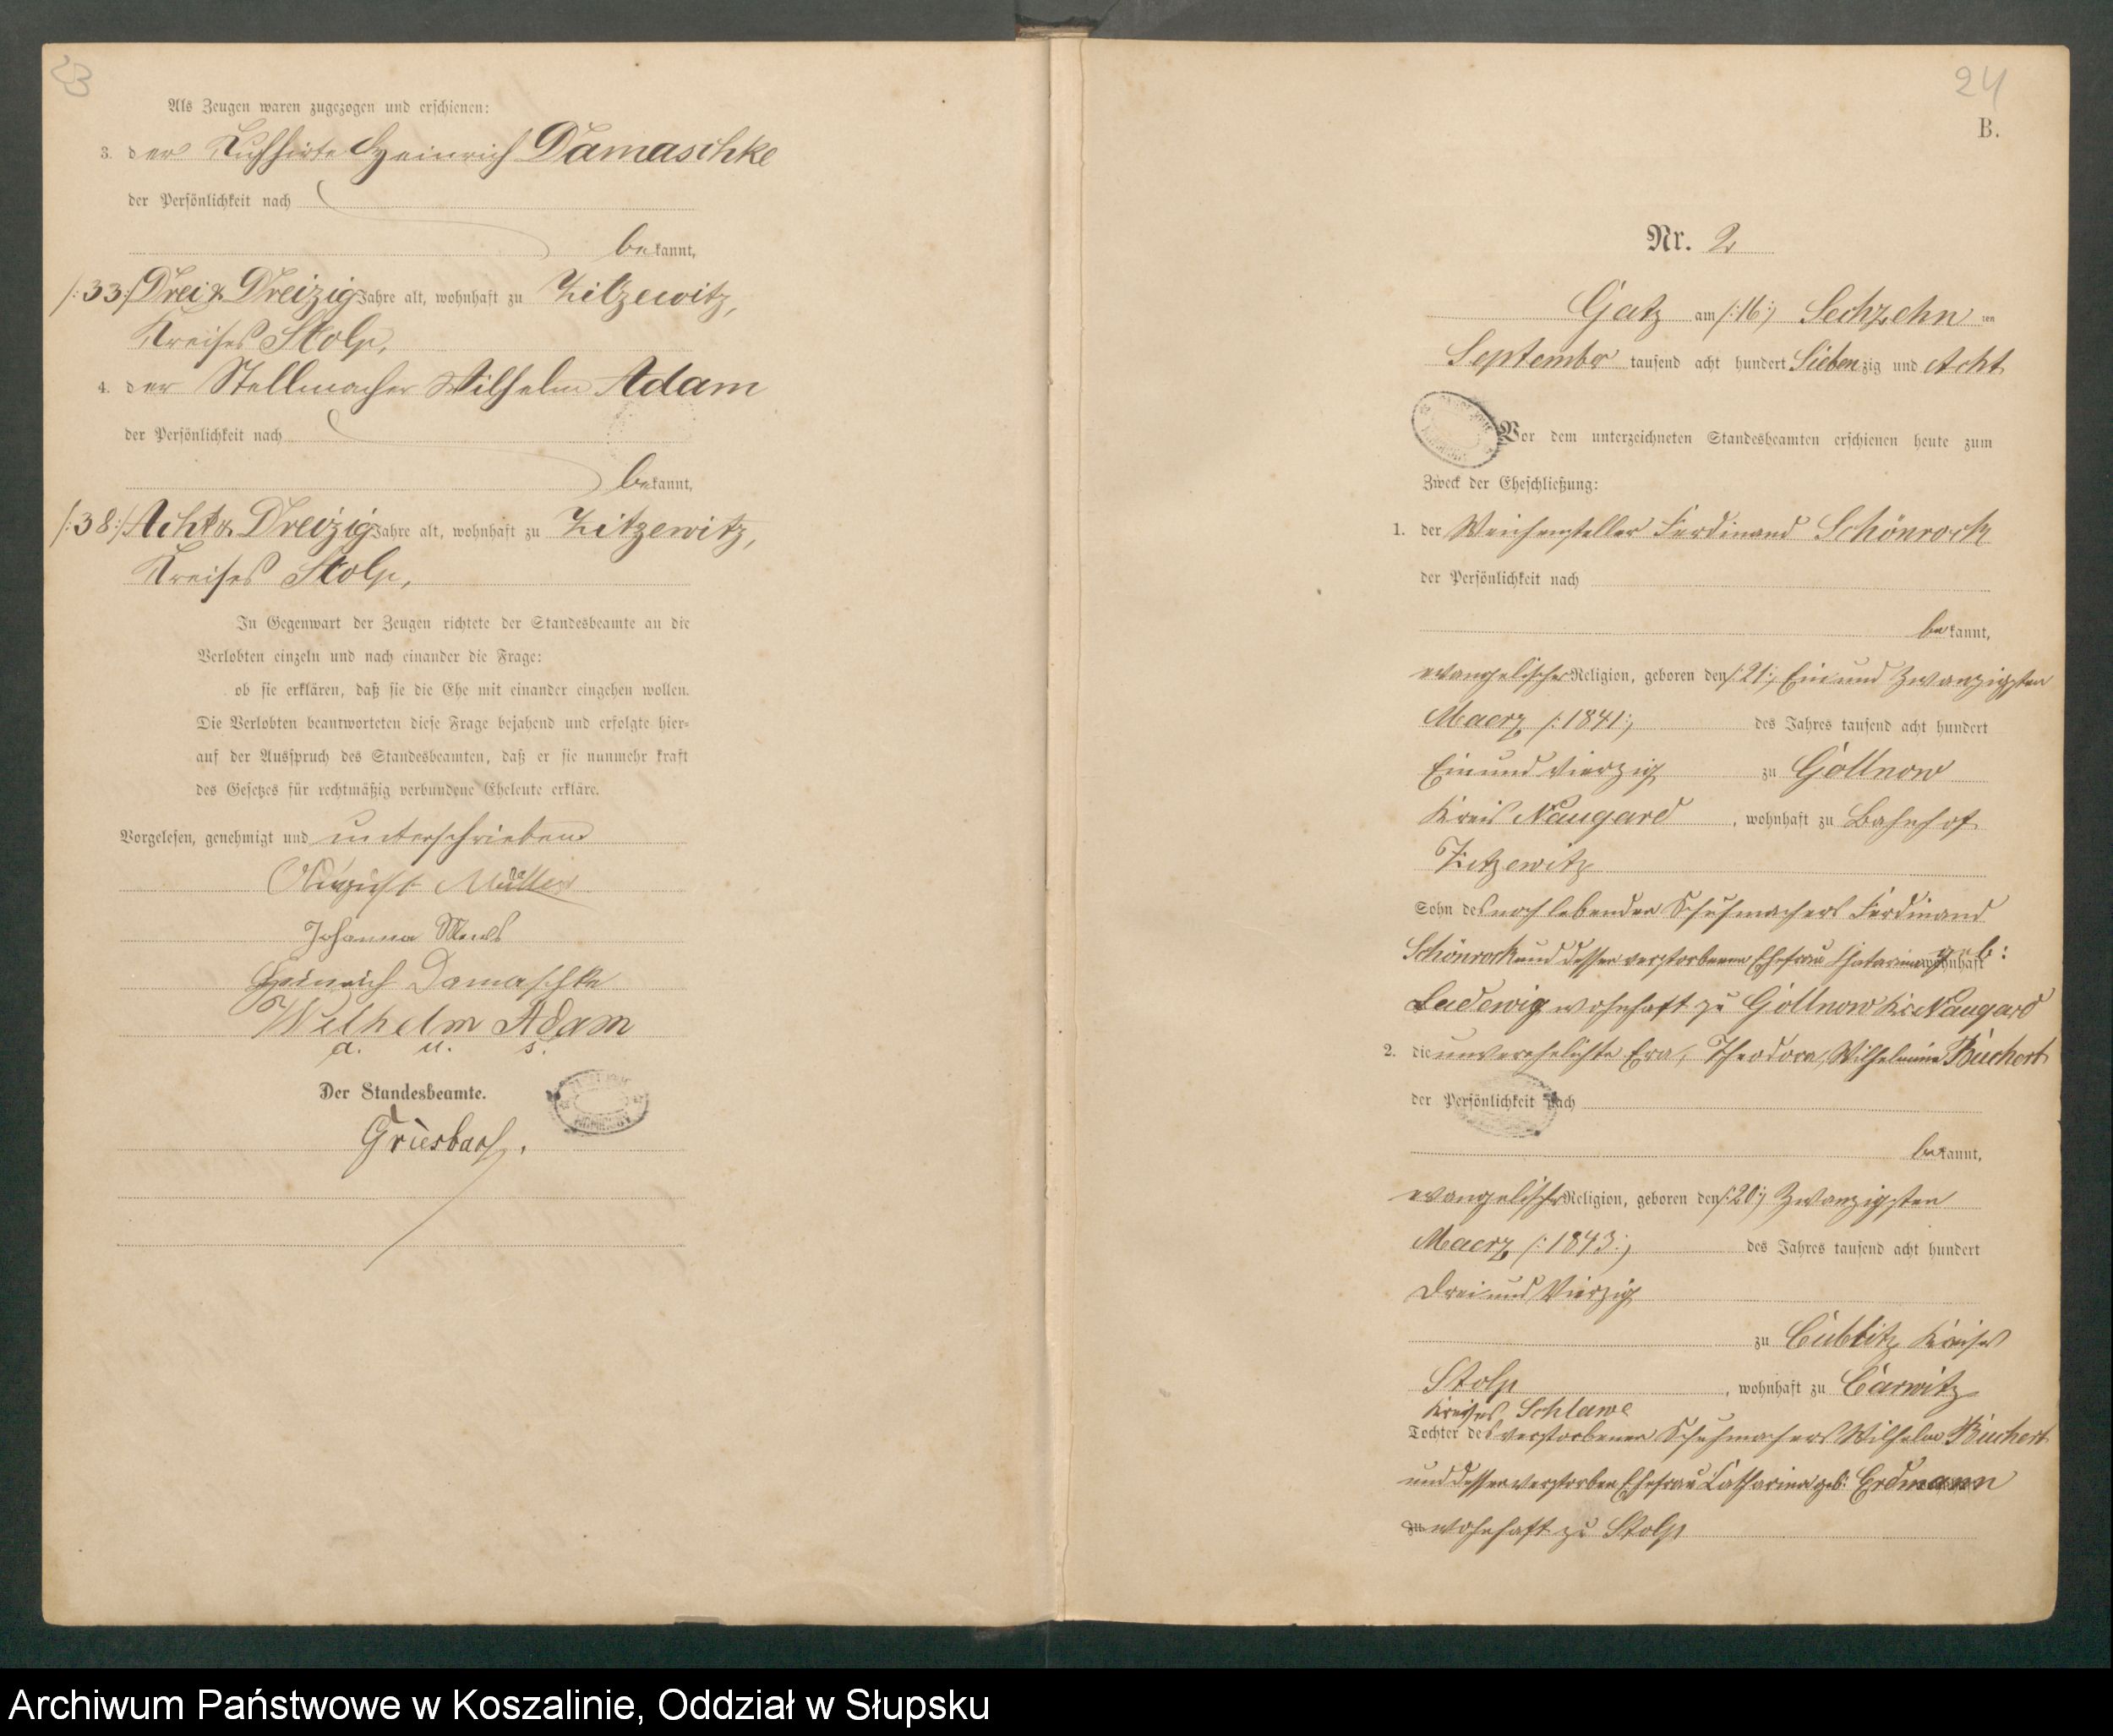 23
Als Zeugen waren zugezogen und erschienen:
3. der Kuhhirte Heinrich Damaschke
der Persönlichkeit nach
bekannt,
/:33:/ Drei & Dreizig Jahre alt, wohnhaft zu Zitzewitz,
Kreises Stolp,
4. der Stellmacher Wilhelm Adam
der Persönlichkeit nach
bekannt,
/:38:/ Acht & Dreizig Jahre alt, wohnhaft zu Zitzewitz,
Kreises Stolp,
In Gegenwart der Zeugen richtete der Standesbeamte an die
Verlobten einzeln und nach einander die Frage:
ob sie erklären, daß sie die Ehe mit einander eingehen wollen.
Die Verlobten beantworteten diese Frage bejahend und erfolgte hier-
auf der Ausspruch des Standesbeamten, daß er sie nunmehr kraft
des Gesetzes für rechtmäßig verbundene Eheleute erkläre.
Vorgelesen, genehmigt und unterschrieben
August Müller
Johanna
Heinrich Damaschke
Wilhelm Adam
a. u. s.
Der Standesbeamte.
Griesbach.
24
B.
Nr. 2
Gatz am /:16:/ Sechzehn ten
September tausend acht hundert Siebenzig und Acht
Vor dem unterzeichneten Standesbeamten erschienen heute zum
Zweck der Eheschließung:
1. der Weichensteller Ferdinand Schönrock
der Persönlichkeit nach
bekannt,
evangelischer Religion, geboren den /:21:/ Ein und Zwanzigsten
Maerz /:1841:/ des Jahres tausend acht hundert
Ein und Vierzig zu Gollnow
Kreis Naugard, wohnhaft zu Bahnhof
Zitzewitz
Sohn des noch lebenden Schuhmachers Ferdinand
Schönrock und dessen verstorbenen Ehefrau Chatarina geb: wohnhaft
Ludewig wohnhaft zu Gollnow Kr. Naugard
2. die unverehelichte Eva, Theodora, Wilhelmine Buchert
der Persönlichkeit nach
bekannt,
evangelischer Religion, geboren den /:20:/ Zwanzigsten
Maerz /:1843:/ des Jahres tausend acht hundert
Drei und Vierzig
zu Cublitz Kreises
Stolp, wohnhaft zu Carwitz
Kreises Schlawe
Tochter des verstorbenen Schuhmachers Wilhelm Buchert
und dessen verstorben Ehefrau Catharina geb: Erdmann
zu wohnhaft zu Stolp
Archiwum Państwowe w Koszalinie, Oddział w Słupsku